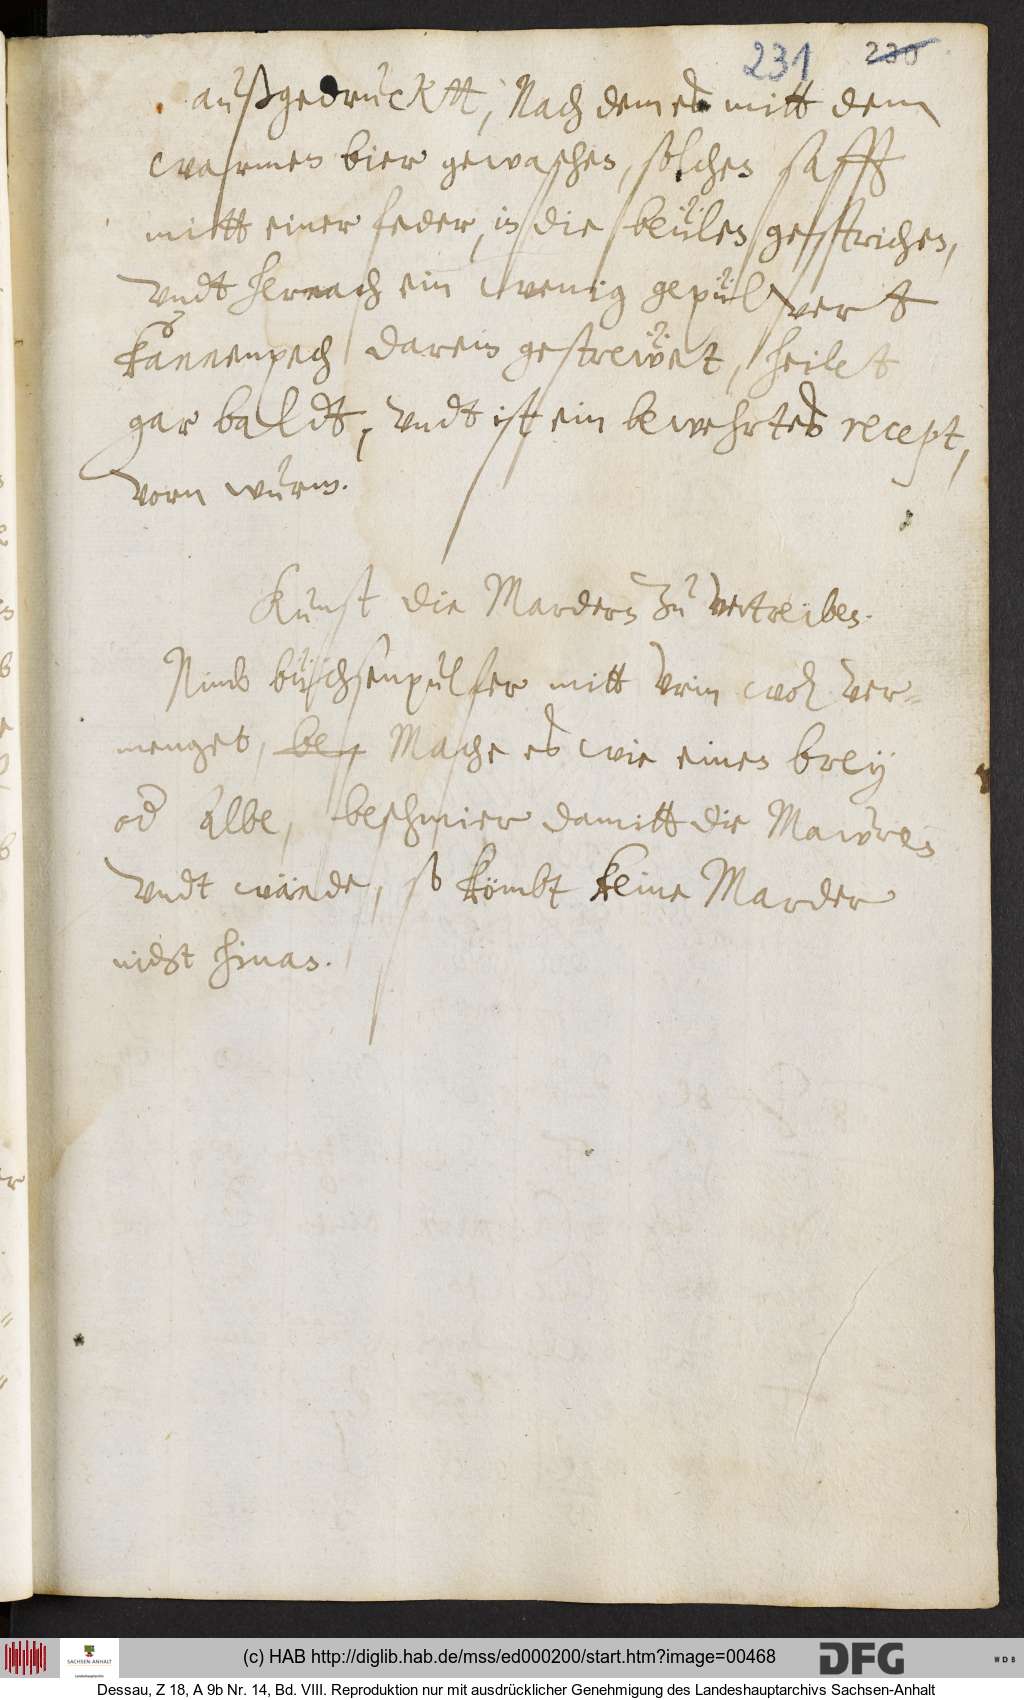 231 230
außgedrucktt, Nach dem es mitt dem
warmen bier gewaschen, solchen safft
mitt einer feder, in die beülen gestrichen,
vndt hernach ein wenig gepülvert
kannenpech darein gestrewet, heilet
gar baldt, vndt ist ein bewehrtes recept,
vorn wurm.
Kunst die Mardern zu vertreiben.
Nimb büchsenpulfer mitt Vrin wol ver-
menget, Mache es wie einen brey
od salbe, beschmier damitt die Mawren
vndt wände, so kömbt keine Marder
nicht hinan.
(c) HAB http://diglib.hab.de/mss/ed000200/start.htm?image=00468
SACHSEN-ANHALT
DFG
WDB
Dessau, Z 18, A 9b Nr. 14, Bd. VIII. Reproduktion nur mit ausdrücklicher Genehmigung des Landeshauptarchivs Sachsen-Anhalt